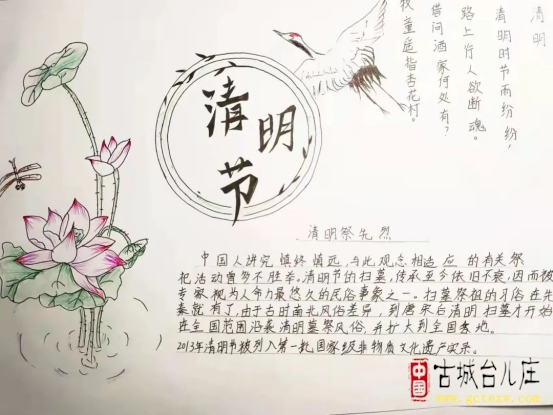 清明
清明时节雨纷纷，
路上行人欲断魂。
借问酒家何处有？
牧童遥指杏花村。
清明节
清明祭先烈
中国人讲究慎终慎远，与此观念相适应的有关祭
祀活动曾多不胜举。清明节的扫墓，传承至今依旧不衰，因而被
专家视为人命力最悠久的民俗事象之一。扫墓祭祖的习俗在先
秦就有了，由于古时南北风俗差异，到唐宋白清明扫墓才开始
在全国范围沿袭清明墓祭风俗，并扩大到全国各地。
2013年清明节被列入第一批国家级非物质文化遗产实录。
中国
古城台儿庄
www.gctezw.com